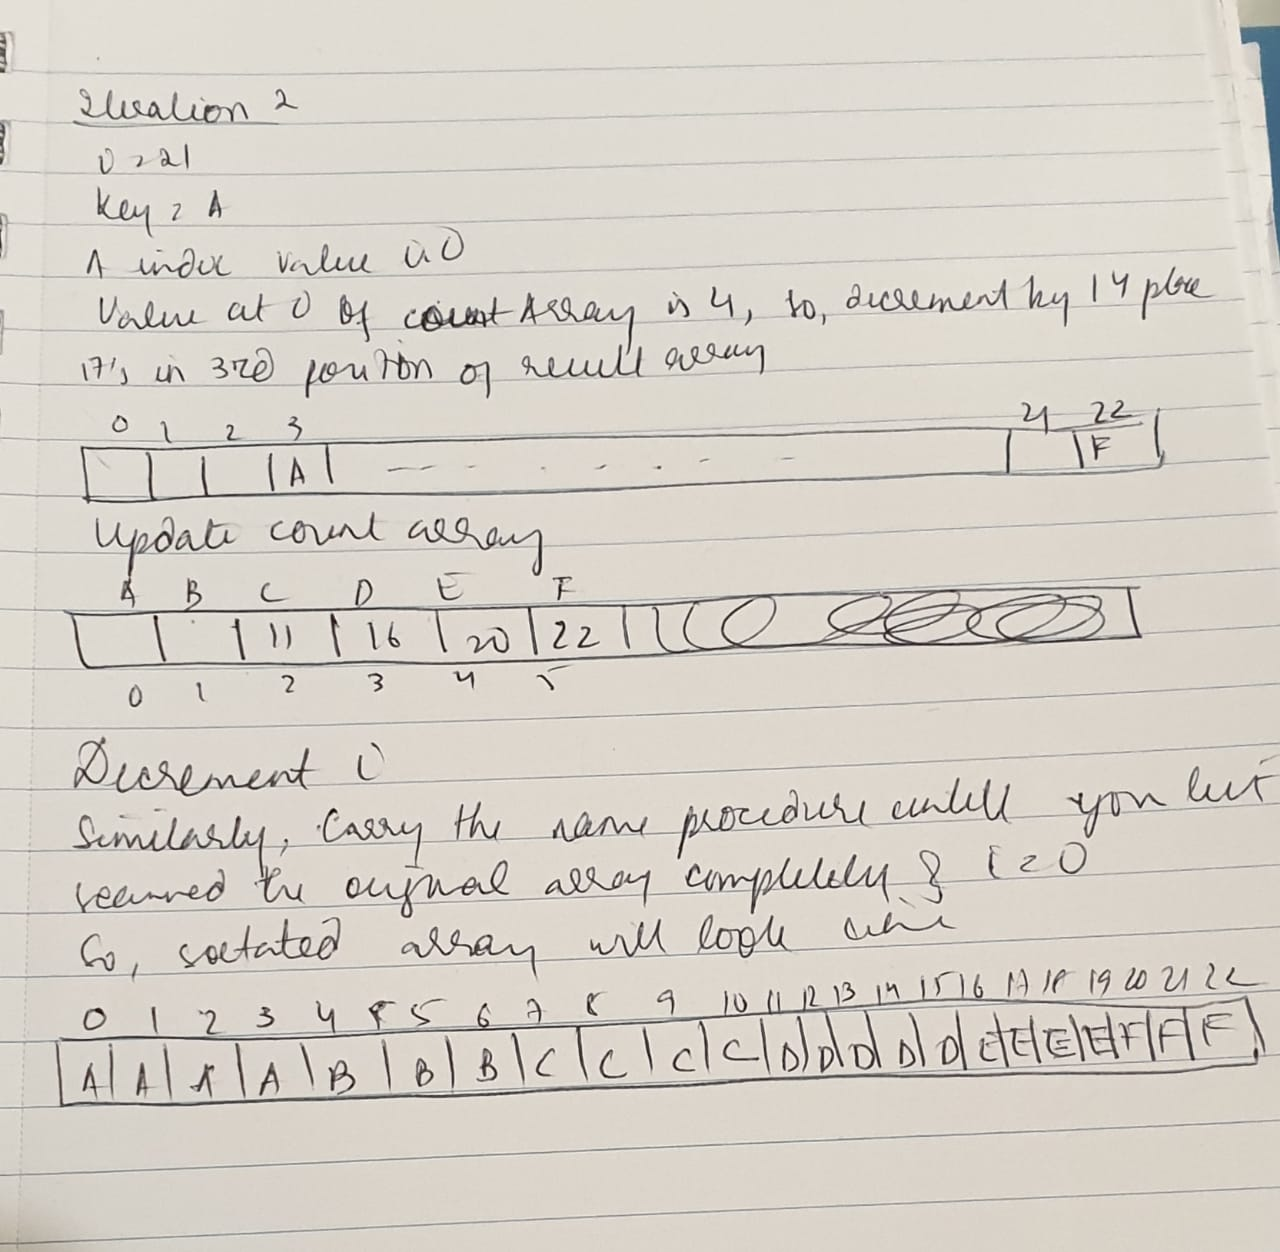 Iteration 2
i = 21
Key = A
A index value is 0
Value at 0 of count Array is 4, so, decrement by 1 & place
it's in 3rd position of result array
0 1 2 3 21 22
A - - - - - - - F
Update count array
A B C D E F
11 16 20 22
0 1 2 3 4 5
Decrement i
Similarly, Carry the same procedure untill you
scanned the original array completely & i = 0
So, array will look like
0 1 2 3 4 5 6 7 8 9 10 11 12 13 14 15 16 17 18 19 20 21 22
A A A A B B B C C C C D D D D D E E E E F F F